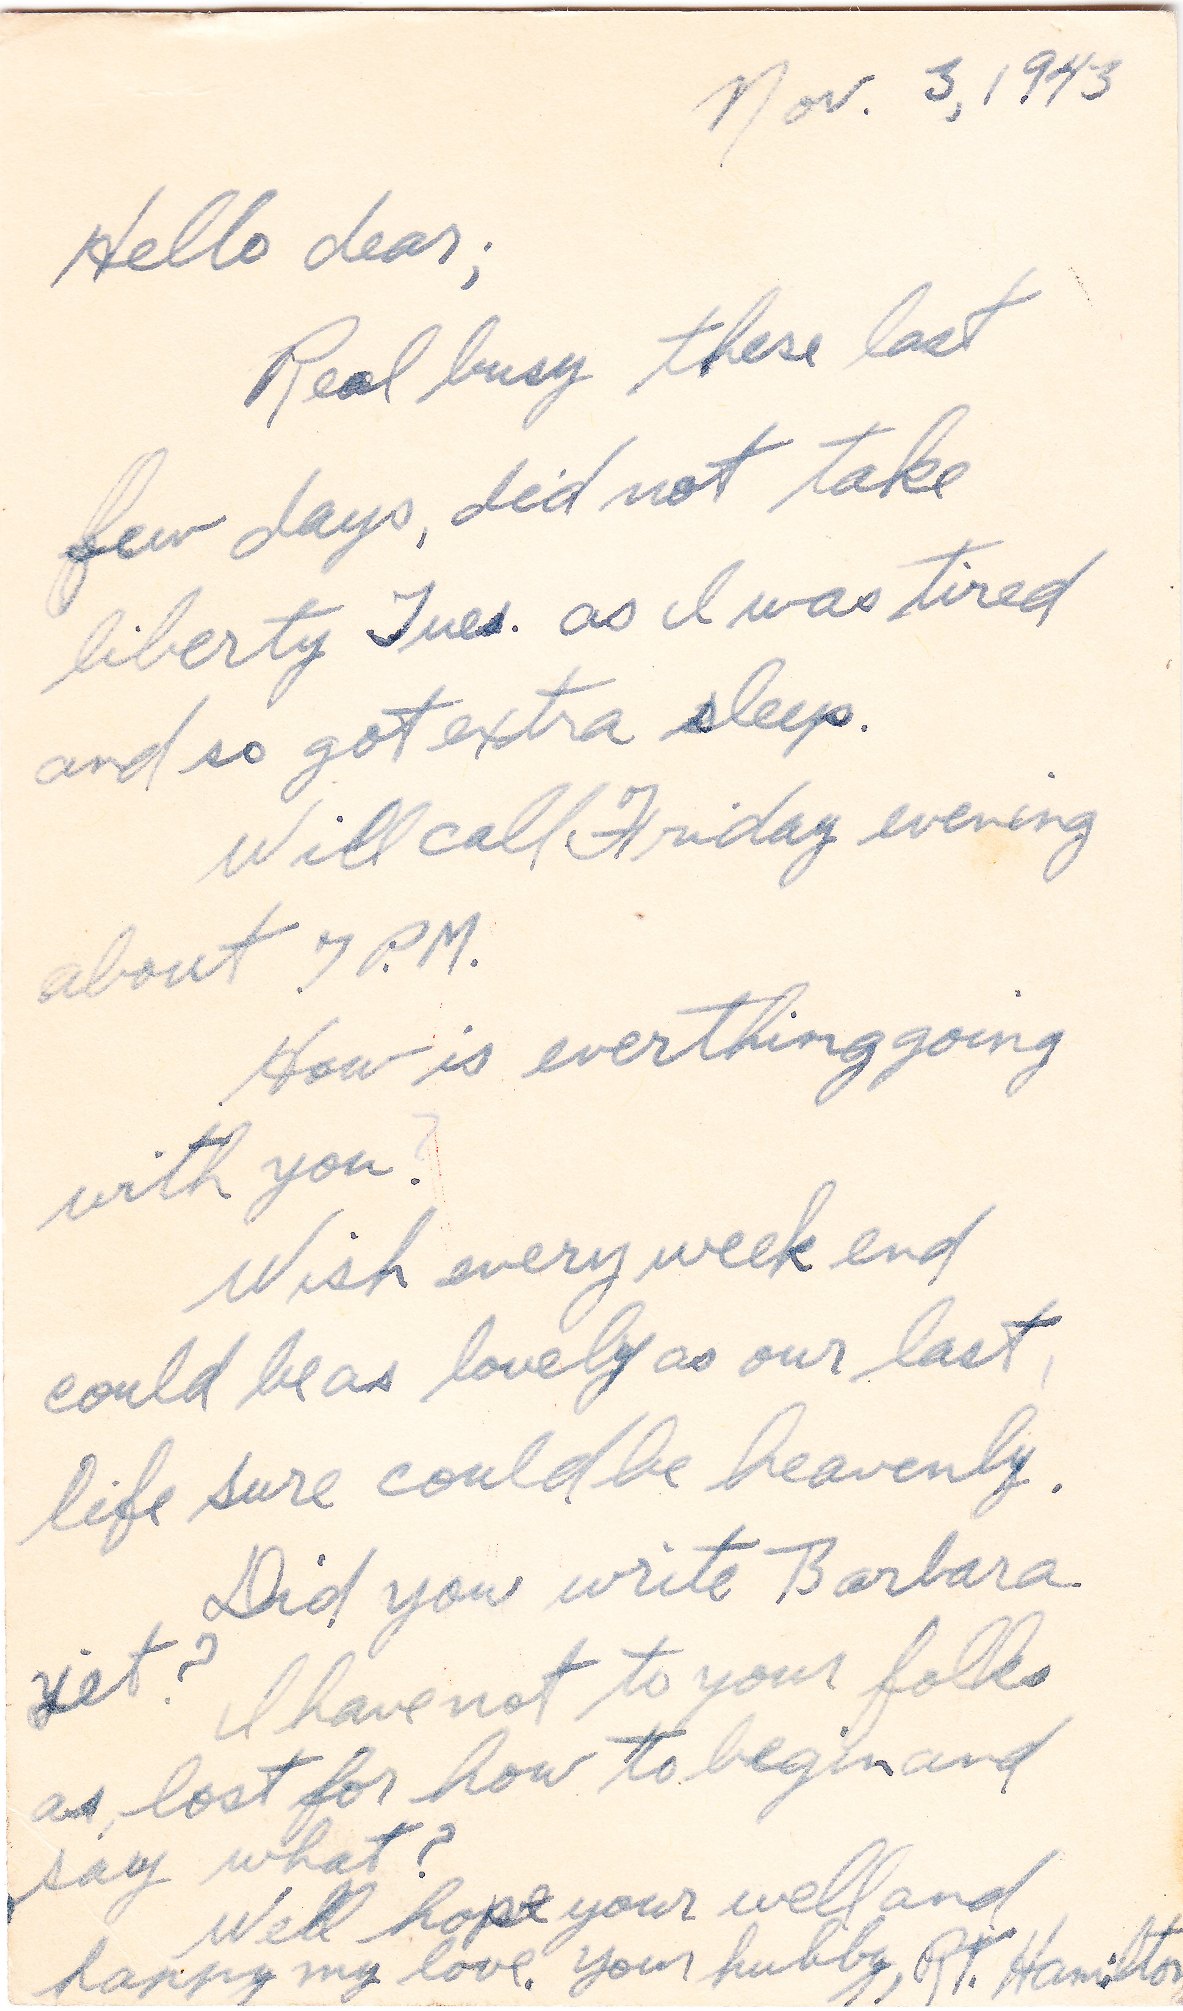 Nov. 3, 1943
Hello dear;
Real busy these last
few days, did not take
liberty Tues. as I was tired
and so got extra sleep.
Will call Friday evening
about 7 P.M.
How is everthing going
with you?
Wish every week end
could be as lovely as our last,
life sure could be heavenly.
Did you write Barbara
yet?
I have not to your folks
as, lost for how to begin and
say what?
Well hope your well and
happy my love. Your hubby, R.V. Hamilton